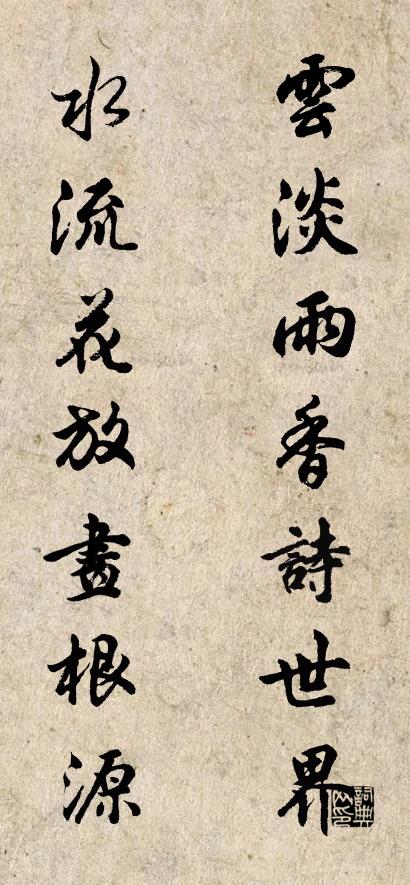 雲淡雨香詩世界
水流花放畫根源